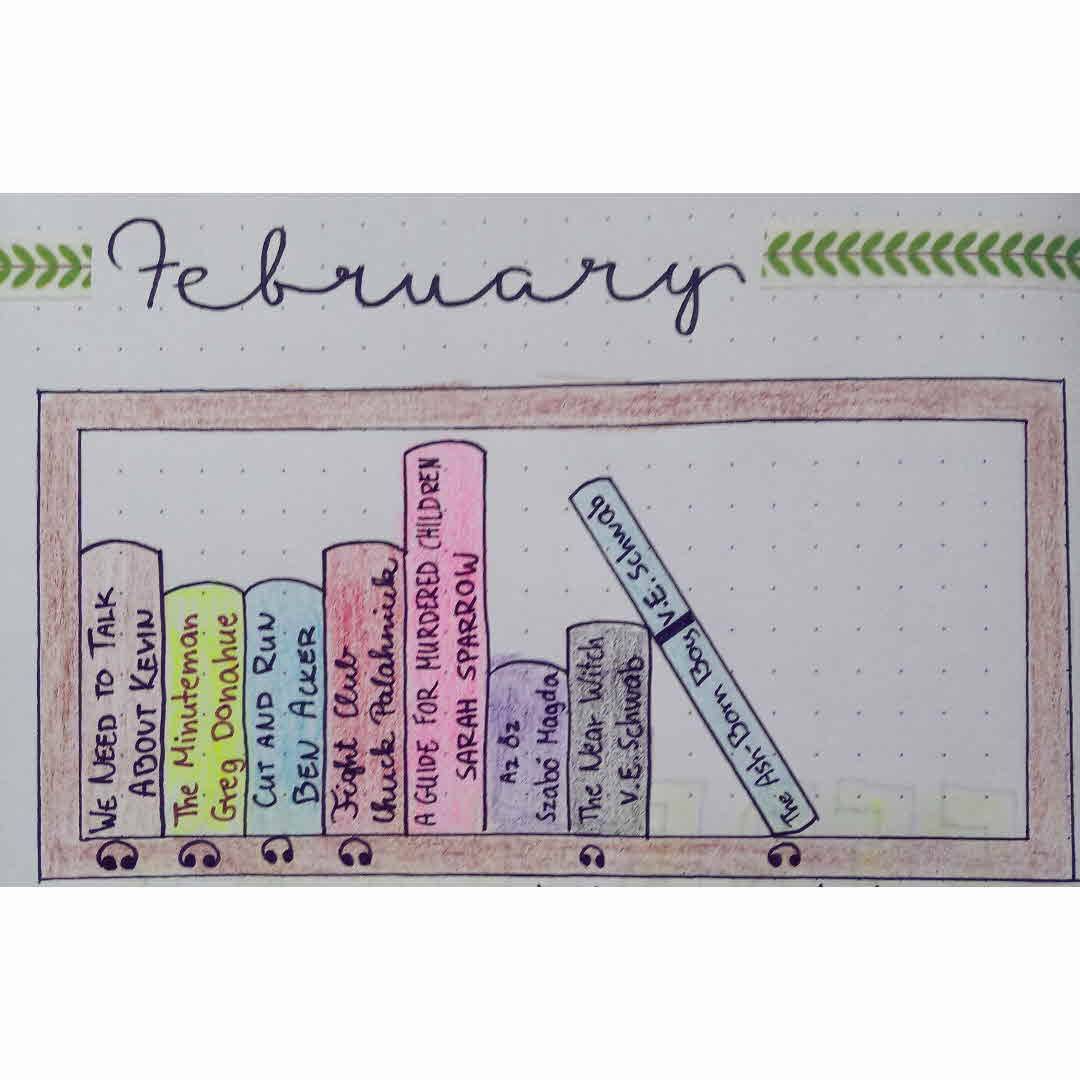 February
WE NEED TO TALK
ABOUT KEVIN
The Minuteman
Greg Donahue
CUT AND RUN
BEN ACKER
Fight Club
Chuck Palahniuk
A GUIDE FOR MURDERED CHILDREN
SARAH SPARROW
Az őz
Szabó Magda
The Near Witch
V.E. Schwab
The Ash-Born Boy V.E. Schwab